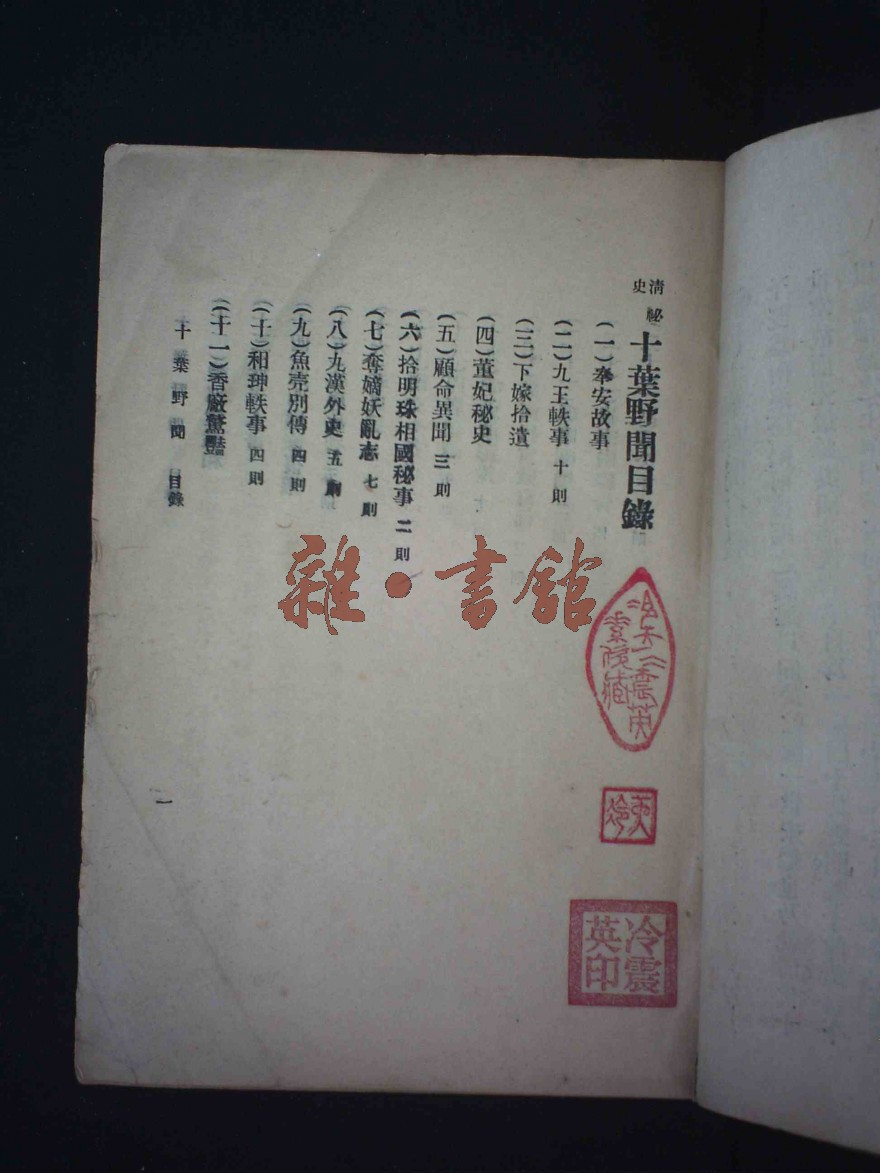 清史祕十葉野聞目錄
(一)奉安故事
(二)九王軼事 十則
(三)下嫁拾遺
(四)董妃秘史
(五)顧命異聞 三則
(六)拾明珠相國秘事 二則
(七)奪嫡妖亂志 七則
(八)九漢外史 五則
(九)魚壳別傳 四則
(十)和珅軼事 四則
(十一)香厰驚豔
十葉野聞 目錄
一
雜·書館
冷震英印